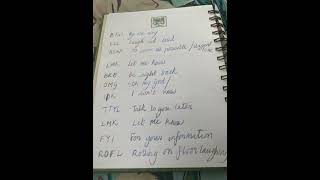 BTW By the way
LOL laugh out loud
ASAP As soon as possible /
LMK Let me know
BRB Be right back
OMG Oh my god /
IDK I don't know
TTYL Talk to you later
LMK Let me know
FYI For your information
ROFL Rolling on floor laughing